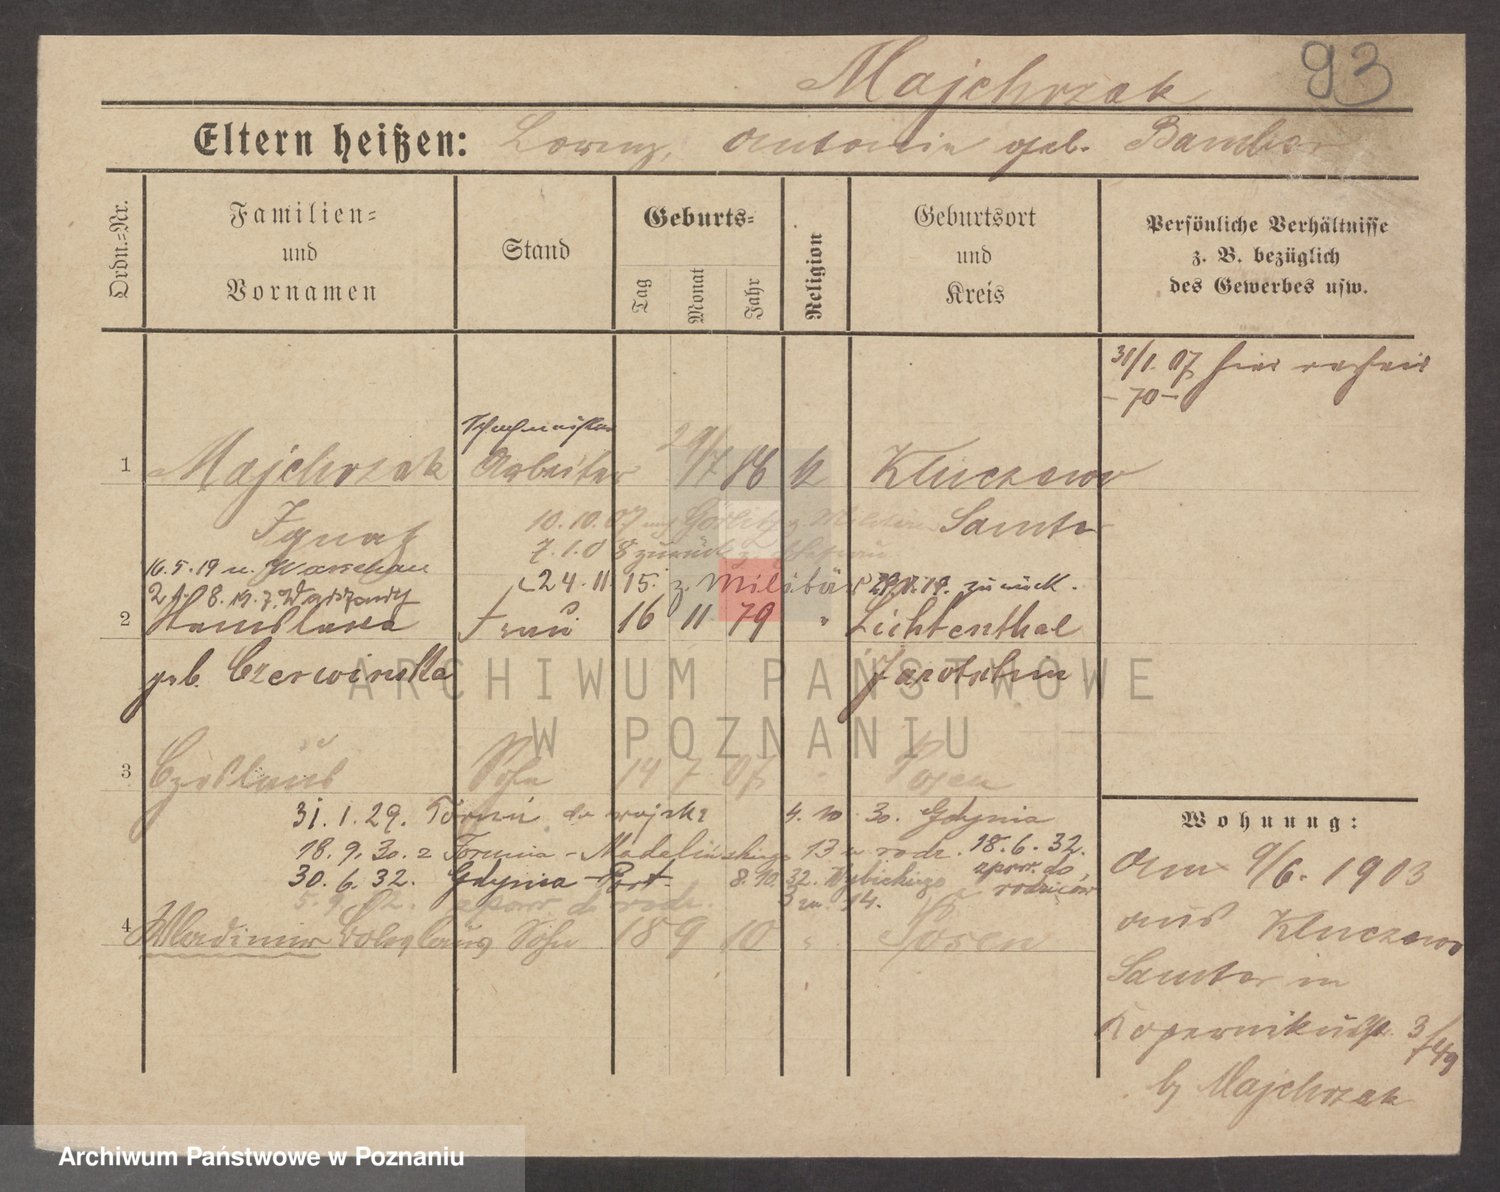 Majchrzak
93
Eltern heißen: Lorenz, Antonie geb. Bamber
Ordn.-Nr.
Familien-
und
Vornamen
Stand
Geburts-
Tag
Monat
Jahr
Religion
Geburtsort
und
Kreis
Persönliche Verhältnisse
z. B. bezüglich
des Gewerbes usw.
31/1. 07 hier
-70-
1 Majchrzak Arbeiter 29/7 86 k Kluczewo
Ignaz 10.10.07 Görlitz z Militär Samter
7.1.08 zurück z.
16.5.19 n. Warschau
24.11.15. z. Militär zurück.
21.8.19. z. Warszawy
2 Stanislawa Frau 16 11 79 " Lichtenthal
geb. Czerwinska Jarotschin
3 Czeslaus Sohn 14 7 07 " Posen
31.1.29. Toruń do wojska 4.10.30. Gdynia
18.9.30. z Torunia - Madalińskiego 13 u rodz. 18.6.32.
30.6.32. Gdynia Port. 8.10.32. Wybickiego
spow. do rodziców
5.9.32. spow do rodz. 14.
4 Wladimir Boleslaus Sohn 18 9 10 " Posen
Wohnung:
Am 9/6. 1903
aus Kluczewo
Samter in
Kopernikusstr. 3
b/ Majchrzak
ARCHIWUM PAŃSTWOWE
W POZNANIU
Archiwum Państwowe w Poznaniu